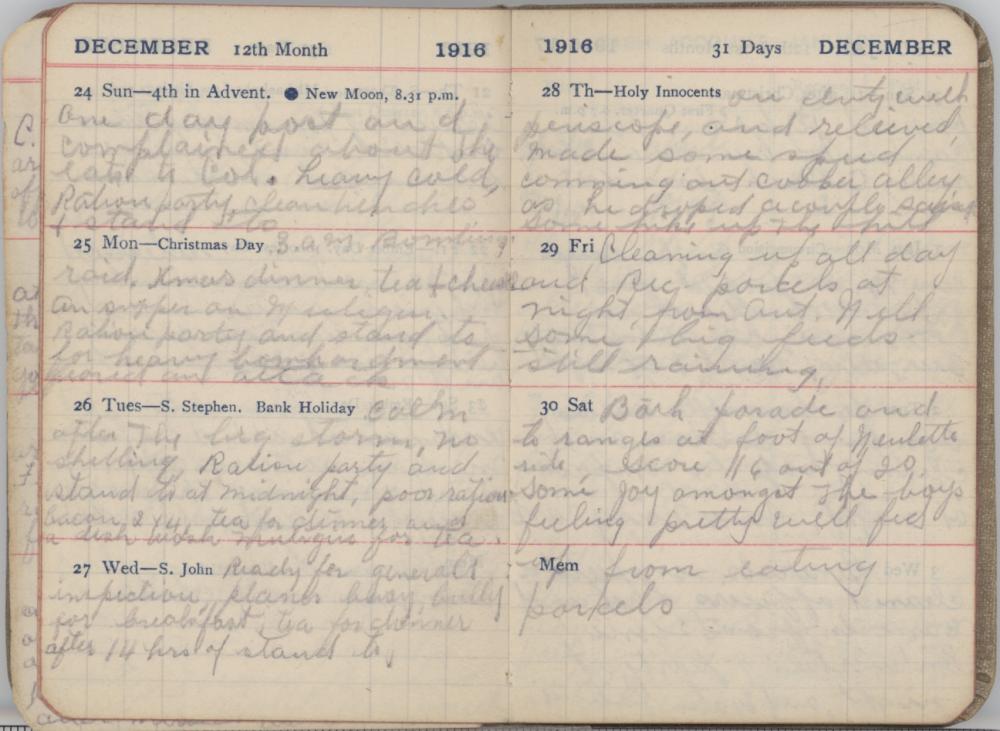 DECEMBER 12th Month 1916
24 Sun—4th in Advent. ● New Moon, 8.31 p.m.
One day post and
complained about
late to Col. heavy cold,
Ration party, clean trenches
& stand to
25 Mon—Christmas Day 3 a.m. Bombing
raid. Xmas dinner, tea & cheese
an supper an Muligan.
Ration party and stand to
for heavy bombardment
an attack
26 Tues—S. Stephen. Bank Holiday calm
after the big storm, no
shelling, Ration party and
stand to at midnight, poor ration
bacon 2 x 4, tea for dinner and
a dish wash muligan for tea.
27 Wed—S. John Ready for generals
inspection, planes busy, burley
for breakfast, tea for dinner
after 14 hrs of stand to,
1916 31 Days DECEMBER
28 Th—Holy Innocents on duty with
periscope, and relieved,
made some speed
comming out cobber alley
as he droped a couply
some up the
29 Fri Cleaning up all day
and Rec. parcels at
night, from Ont. N ell
some big feeds.
still raining,
30 Sat Bath parade and
to ranges at foot of Neulette
side score 116 out of 20,
some joy amongst the boys
feeling pretty well fed
Mem
up from eating
parcels